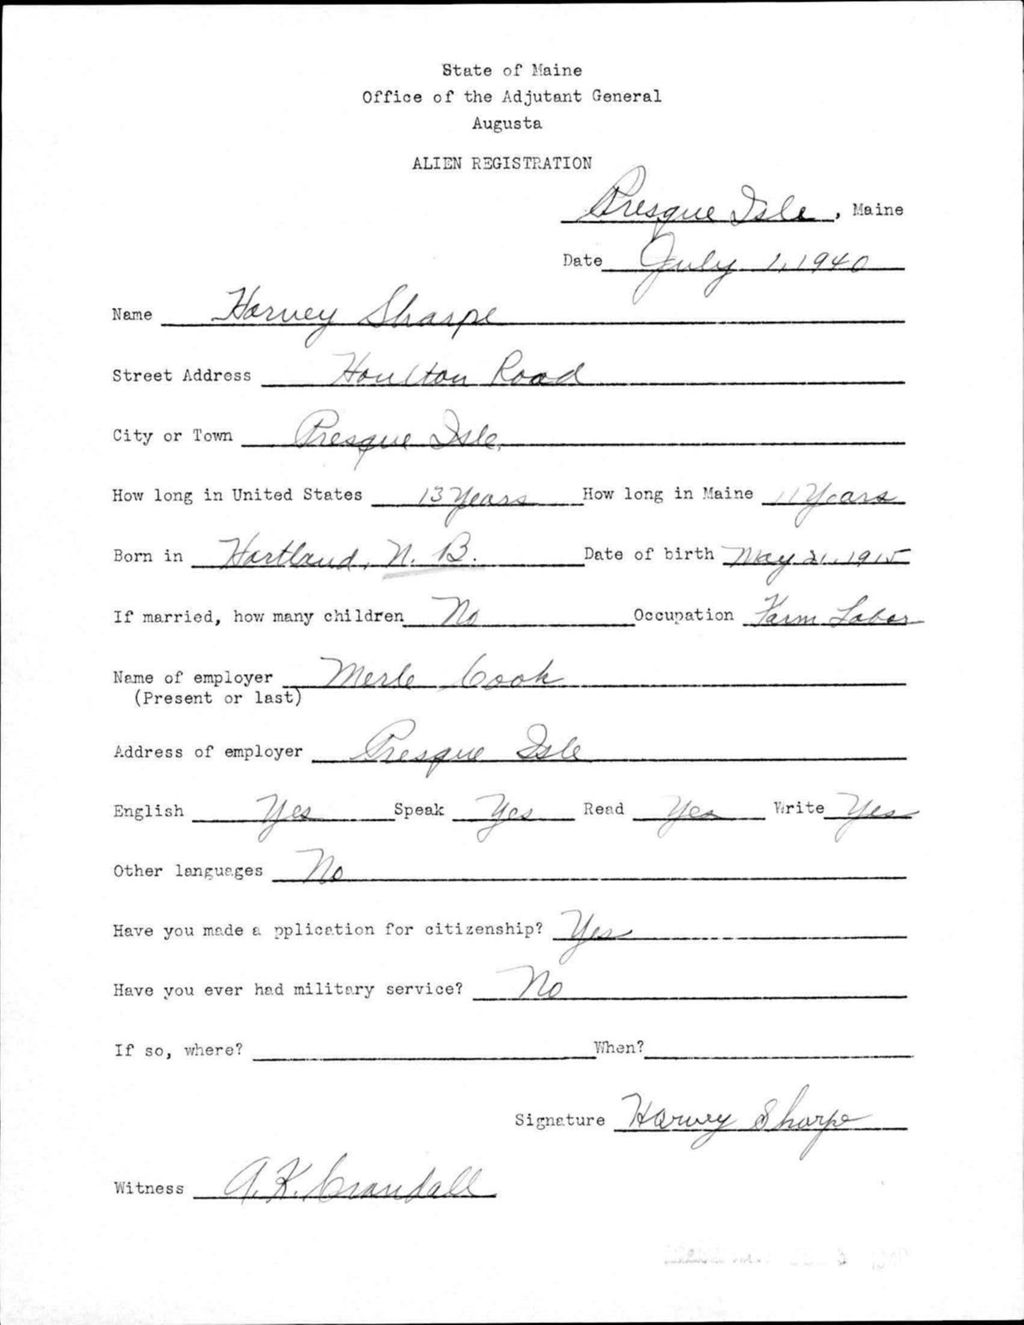 State of Maine
Office of the Adjutant General
Augusta
ALIEN REGISTRATION
Presque Isle, Maine
Date July 1, 1940
Name Harvey Sharpe
Street Address Houlton Road
City or Town Presque Isle,
How long in United States 13 Years How long in Maine 11 Years
Born in Hartland, N. B. Date of birth May 21, 1915
If married, how many children No Occupation Farm Labor
Name of employer Merle Cook
(Present or last)
Address of employer Presque Isle
English Yes Speak Yes Read Yes Write Yes
Other languages No
Have you made a pplication for citizenship? Yes
Have you ever had military service? No
If so, where? When?
Signature Harvey Sharpe
Witness A. K. Crandall